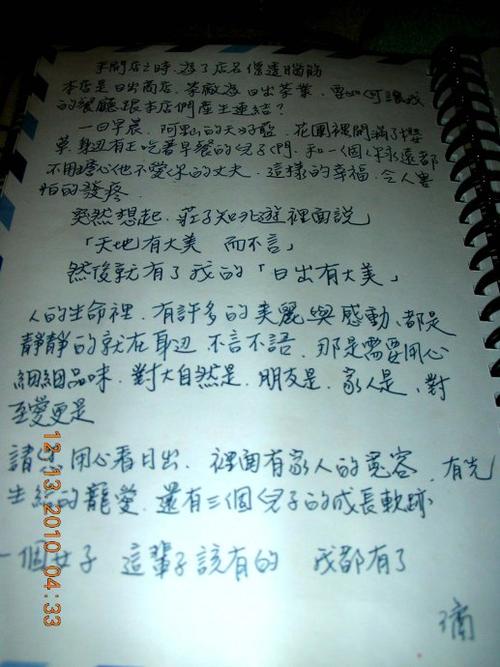 開店之時、為了店名傷透腦筋
本店是日出商店、茶廠是日出茶業、要如何讓我
的餐廳跟本店們產生連結？
一日早晨、阿里山的天好藍、花園裡開滿了櫻
草、身邊有正吃著早餐的兒子們、和一個你永遠都
不用擔心他不愛你的丈夫、這樣的幸福、令人害
怕的發疼、
突然想起、莊子知北遊裡面說」
「天地有大美 而不言」
然後就有了我的「日出有大美」
人的生命裡、有許多的美麗與感動、都是
靜靜的就在身邊、不言不語、那是需要用心
細細品味、對大自然是、朋友是、家人是、對
至愛更是
請您用心看日出、裡面有家人的寬容、有先
生給的寵愛、還有三個兒子的成長軌跡
一個女子 這輩子該有的 我都有了
12.13.2010 04:33